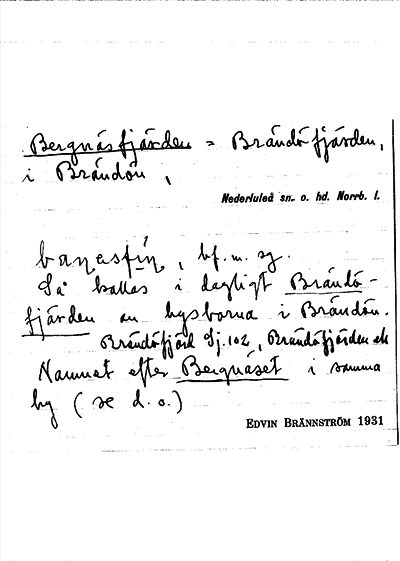 Bergnäsfjärden = Brändöfjärden,
i Brändön,
Nederluleå sn. o. hd. Norrb. l.
bf. m. sg.
Så kallas i dagligt Brändö-
fjärden av bysborna i Brändön.
Brändöfjärd Sj. 102, Brändöfjärden ek
Namnet efter Bergnäset i samma
by (se d. o.)
EDVIN BRÄNNSTRÖM 1931